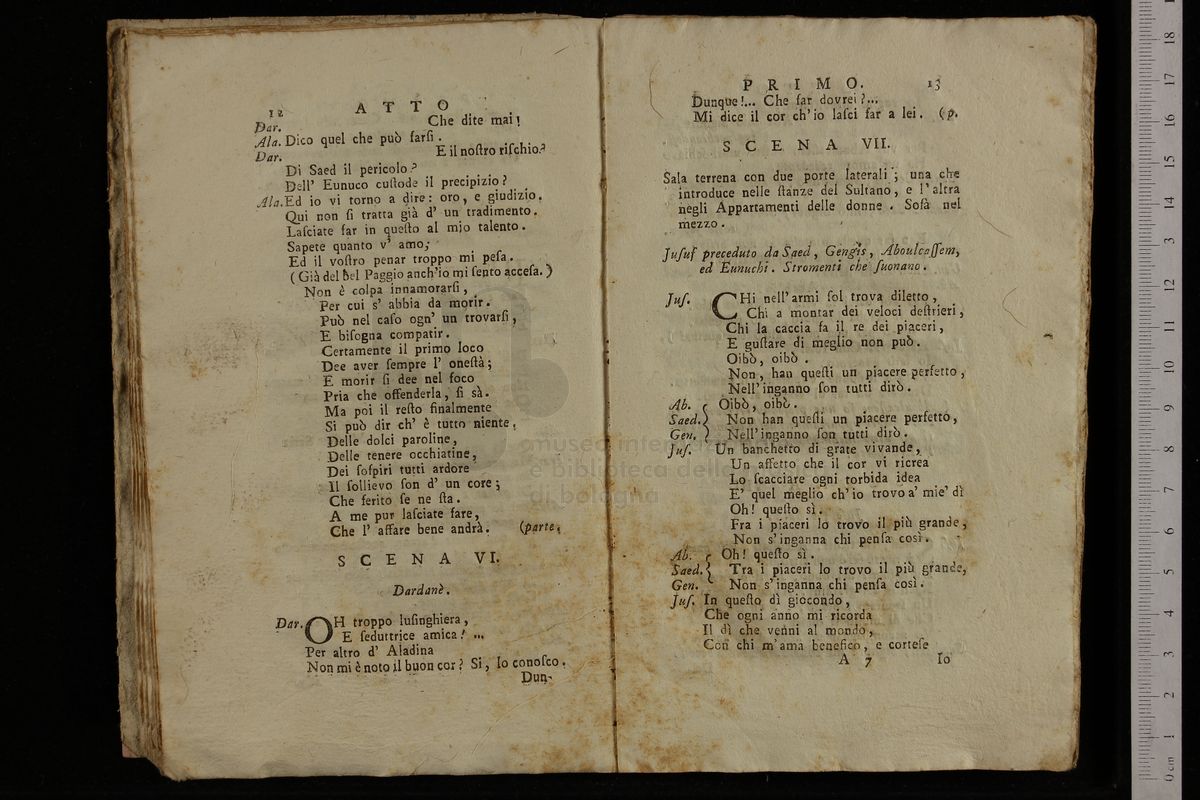 12 ATTO
Dar. Che dite mai!
Ala. Dico quel che può farſi.
Dar. E il noſtro riſchio?
Di Saed il pericolo?
Dell' Eunuco cuſtode il precipizio?
Ala. Ed io vi torno a dire: oro, e giudizio.
Qui non ſi tratta già d' un tradimento.
Laſciate far in queſto al mio talento.
Sapete quanto v' amo;
Ed il voſtro penar troppo mi peſa.
(Già del bel Paggio anch'io mi ſento acceſa.)
Non è colpa innamorarſi,
Per cui s' abbia da morir.
Può nel caſo ogn' un trovarſi,
E biſogna compatir.
Certamente il primo loco
Dee aver ſempre l' oneſtà;
E morir ſi dee nel foco
Pria che offenderla, ſi sà.
Ma poi il reſto finalmente
Si può dir ch' è tutto niente,
Delle dolci paroline,
Delle tenere occhiatine,
Dei ſoſpiri tutti ardore
Il ſollievo ſon d' un core;
Che ferito ſe ne ſta.
A me pur laſciate fare,
Che l' affare bene andrà. (parte.
SCENA VI.
Dardanè.
Dar. OH troppo luſinghiera,
E ſeduttrice amica! ...
Per altro d' Aladina
Non mi è noto il buon cor? Si, Io conoſco.
Dun-
PRIMO. 13
Dunque!... Che far dovrei?...
Mi dice il cor ch'io laſci far a lei. (p.
SCENA VII.
Sala terrena con due porte laterali; una che
introduce nelle ſtanze del Sultano, e l'altra
negli Appartamenti delle donne. Sofà nel
mezzo.
Juſuf preceduto da Saed, Gengis, Aboulcaſſem,
ed Eunuchi. Stromenti che ſuonano.
Juſ. CHi nell'armi ſol trova diletto,
Chi a montar dei veloci deſtrieri,
Chi la caccia fa il re dei piaceri,
E guſtare di meglio non può.
Oibò, oibò.
Non, han queſti un piacere perfetto,
Nell'inganno ſon tutti dirò.
Ab. Oibò, oibò.
Saed. Non han queſti un piacere perfetto,
Gen. Nell'inganno ſon tutti dirò.
Juſ. Un banchetto di grate vivande,
Un affetto che il cor vi ricrea
Lo ſcacciare ogni torbida idea
E' quel meglio ch'io trovo a' mie' dì
Oh! queſto sì.
Fra i piaceri lo trovo il più grande,
Non s'inganna chi penſa così.
Ab. Oh! queſto sì.
Saed. Tra i piaceri lo trovo il più grande,
Gen. Non s'inganna chi penſa così.
Juſ. In queſto dì giocondo,
Che ogni anno mi ricorda
Il dì che venni al mondo,
Con chi m'ama benefico, e corteſe
A 7 Io
museo inter
e biblioteca della
di bologna
0 cm 1 2 3 4 5 6 7 8 9 10 11 12 13 14 15 16 17 18